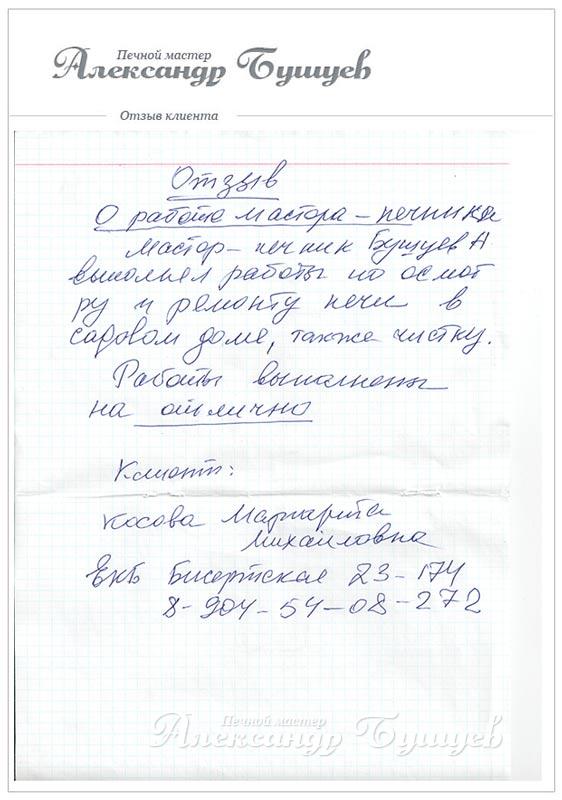 Печной мастер
Александр Бушуев
Отзыв клиента
Отзыв
О работе мастера-печника
Мастер-печник Бушуев А.
выполнял работы по осмот
ру и ремонту печи в
садовом доме, также чистку.
Работы выполнены
на отлично
Клиент:
Косова Маргарита
Михайловна
Екб Бисертская 23-174
8-904-54-08-272
Печной мастер
Александр Бушуев